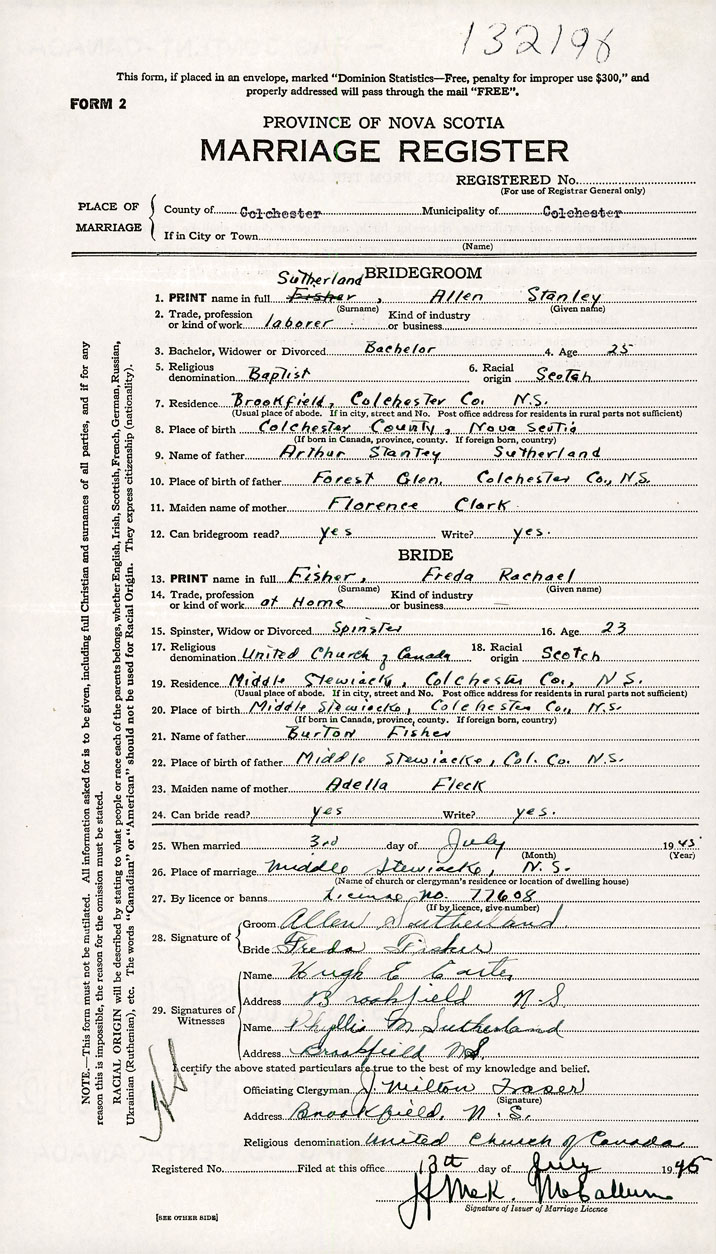 132196
This form, if placed in an envelope, marked "Dominion Statistics—Free, penalty for improper use $300," and
properly addressed will pass through the mail "FREE".
FORM 2
PROVINCE OF NOVA SCOTIA
MARRIAGE REGISTER
REGISTERED No.
(For use of Registrar General only)
PLACE OF MARRIAGE
County of Colchester Municipality of Colchester
If in City or Town
(Name)
BRIDEGROOM
Sutherland
1. PRINT name in full Fisher, Allen Stanley
(Surname) (Given name)
2. Trade, profession or kind of work laborer Kind of industry or business
3. Bachelor, Widower or Divorced Bachelor 4. Age 25
5. Religious denomination Baptist 6. Racial origin Scotch
7. Residence Brookfield, Colchester Co. N.S.
(Usual place of abode. If in city, street and No. Post office address for residents in rural parts not sufficient)
8. Place of birth Colchester County, Nova Scotia
(If born in Canada, province, county. If foreign born, country)
9. Name of father Arthur Stanley Sutherland
10. Place of birth of father Forest Glen, Colchester Co., N.S.
11. Maiden name of mother Florence Clark
12. Can bridegroom read? yes Write? yes.
BRIDE
13. PRINT name in full Fisher, Freda Rachael
(Surname) (Given name)
14. Trade, profession or kind of work at Home Kind of industry or business —
15. Spinster, Widow or Divorced Spinster 16. Age 23
17. Religious denomination United Church of Canada 18. Racial origin Scotch
19. Residence Middle Stewiacke, Colchester Co., N.S.
(Usual place of abode. If in city, street and No. Post office address for residents in rural parts not sufficient)
20. Place of birth Middle Stewiacke, Colchester Co., N.S.
(If born in Canada, province, county. If foreign born, country)
21. Name of father Burton Fisher
22. Place of birth of father Middle Stewiacke, Col. Co. N.S.
23. Maiden name of mother Adella Fleck
24. Can bride read? yes Write? yes.
25. When married 3rd day of July 1945
(Month) (Year)
26. Place of marriage Middle Stewiacke, N.S.
(Name of church or clergyman's residence or location of dwelling house)
27. By licence or banns License no. 77608
(If by licence, give number)
28. Signature of
Groom Allen Sutherland
Bride Freda Fisher
29. Signatures of Witnesses
Name Hugh E
Address Brookfield N S
Name Phyllis M Sutherland
Address Brookfield N.S.
I certify the above stated particulars are true to the best of my knowledge and belief.
Officiating Clergyman J. Milton Fraser
(Signature)
Address Brookfield, N.S.
Religious denomination United Church of Canada
Registered No. Filed at this office 13th day of July 1945
McK. McCallum
Signature of Issuer of Marriage Licence
[SEE OTHER SIDE]
NOTE.—This form must not be mutilated. All information asked for is to be given, including full Christian and surnames of all parties, and if for any
reason this is impossible, the reason for the omission must be stated.
RACIAL ORIGIN will be described by stating to what people or race each of the parents belongs, whether English, Irish, Scottish, French, German, Russian,
Ukrainian (Ruthenian), etc. The words "Canadian" or "American" should not be used for Racial Origin. They express citizenship (nationality).